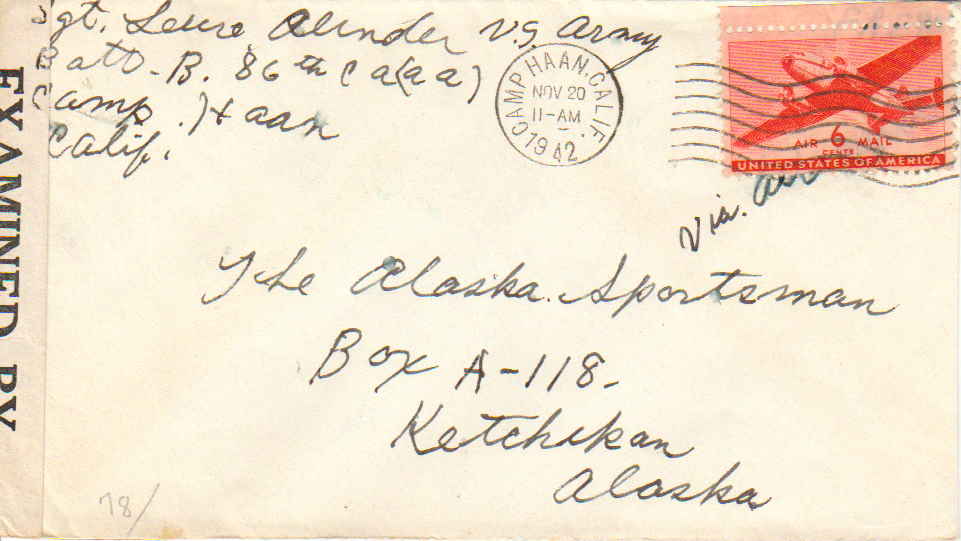 Sgt. Alinder U.S. Army
Batt-B. 86th Ca(aa)
Camp Haan
Calif.
CAMP HAAN, CALIF.
NOV 20
11-AM
1942
AIR 6 MAIL
CENTS
UNITED STATES OF AMERICA
Via. Air
The Alaska Sportsman
Box A-118-
Ketchikan
Alaska
EXAMINED BY
78/